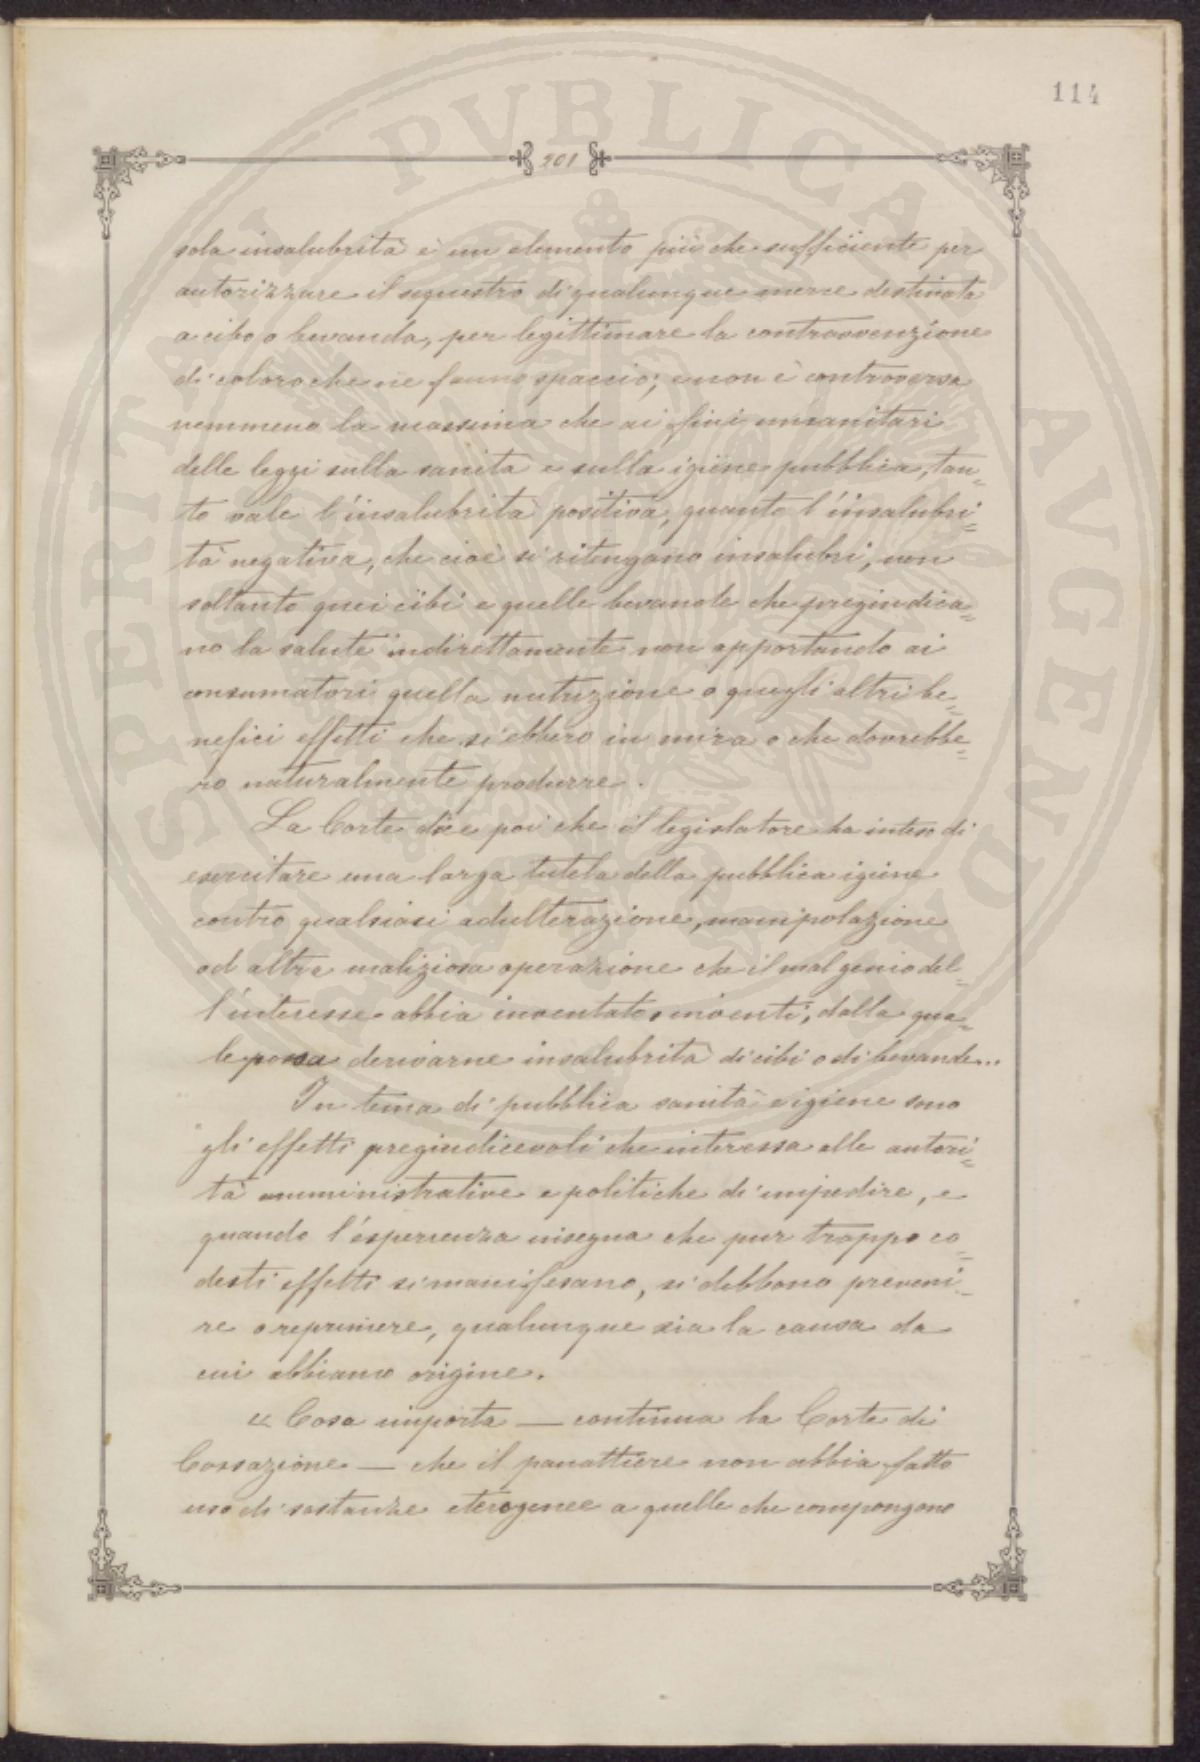 114
201
sola insalubrità è un elemento più che sufficiente per
autorizzare il sequestro di qualunque merce destinata
a cibo o bevanda, per legittimare la contravvenzione
di coloro che ne fanno spaccio; e non è controversa
nemmeno la massima che ai fini umanitari
delle leggi sulla sanità e sulla igiene pubblica, tan=
to vale l'insalubrità positiva, quanto l'insalubri=
tà negativa, che cioè si ritengano insalubri, non
soltanto quei cibi e quelle bevande che pregiudica=
no la salute indirettamente non apportando ai
consumatori quella nutrizione o quegli altri be=
nefici effetti che si ebbero in mira o che dovrebbe=
ro naturalmente produrre.
La Corte dice poi che il legislatore ha inteso di
esercitare una larga tutela della pubblica igiene
contro qualsiasi adulterazione, manipolazione
od altra maliziosa operazione che il mal genio del=
l'interesse abbia inventato o inventi, dalla qua=
le possa derivarne insalubrità di cibi o di bevande...
In tema di pubblica sanità e igiene sono
gli effetti pregiudicevoli che interessa alle autori=
tà amministrative e politiche di impedire, e
quando l'esperienza insegna che pur troppo co=
desti effetti si manifesano, si debbono preveni=
re o reprimere, qualunque sia la causa da
cui abbiano origine.
« Cosa importa — continua la Corte di
Cassazione — che il panattiere non abbia fatto
uso di sostanze eterogenee a quelle che compongono
SPERITAT PVBLICAE AVGENDAE